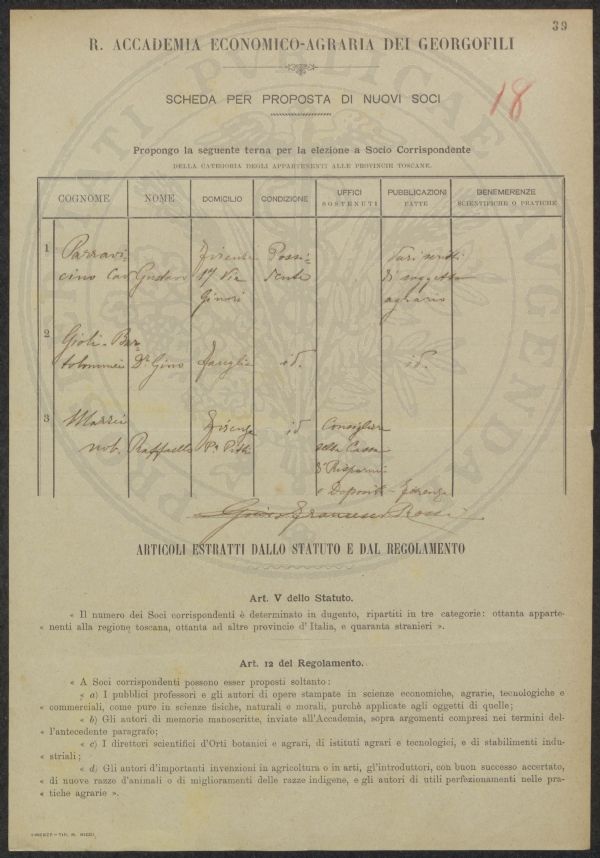 39
R. ACCADEMIA ECONOMICO-AGRARIA DEI GEORGOFILI
SCHEDA PER PROPOSTA DI NUOVI SOCI
18
Propongo la seguente terna per la elezione a Socio Corrispondente
DELLA CATEGORIA DEGLI APPARTENENTI ALLE PROVINCIE TOSCANE.
COGNOME NOME DOMICILIO CONDIZIONE UFFICI SOSTENUTI PUBBLICAZIONI FATTE BENEMERENZE SCIENTIFICHE O PRATICHE
1 Parravi- Firenze Possi- Vari scritti
cino Cav Gustavo 17 Via dente di soggetto
Ginori agrario
2 Gioli-Bar-
tolommei Dr Gino id. id.
3 Firenze id Consigliere
nob. Raffaello Pa Pitti della Cassa
di Risparmi
e Depositi Firenze
Francesco Rossi
ARTICOLI ESTRATTI DALLO STATUTO E DAL REGOLAMENTO
Art. V dello Statuto.
« Il numero dei Soci corrispondenti è determinato in dugento, ripartiti in tre categorie: ottanta apparte-
« nenti alla regione toscana, ottanta ad altre provincie d'Italia, e quaranta stranieri ».
Art. 12 del Regolamento.
« A Soci corrispondenti possono esser proposti soltanto:
« a) I pubblici professori e gli autori di opere stampate in scienze economiche, agrarie, tecnologiche e
« commerciali, come pure in scienze fisiche, naturali e morali, purchè applicate agli oggetti di quelle;
« b) Gli autori di memorie manoscritte, inviate all'Accademia, sopra argomenti compresi nei termini del-
« l'antecedente paragrafo;
« c) I direttori scientifici d'Orti botanici e agrari, di istituti agrari e tecnologici, e di stabilimenti indu-
« striali;
« d) Gli autori d'importanti invenzioni in agricoltura o in arti, gl'introduttori, con buon successo accertato,
« di nuove razze d'animali o di miglioramenti delle razze indigene, e gli autori di utili perfezionamenti nelle pra-
« tiche agrarie ».
FIRENZE - TIP. M. RICCI